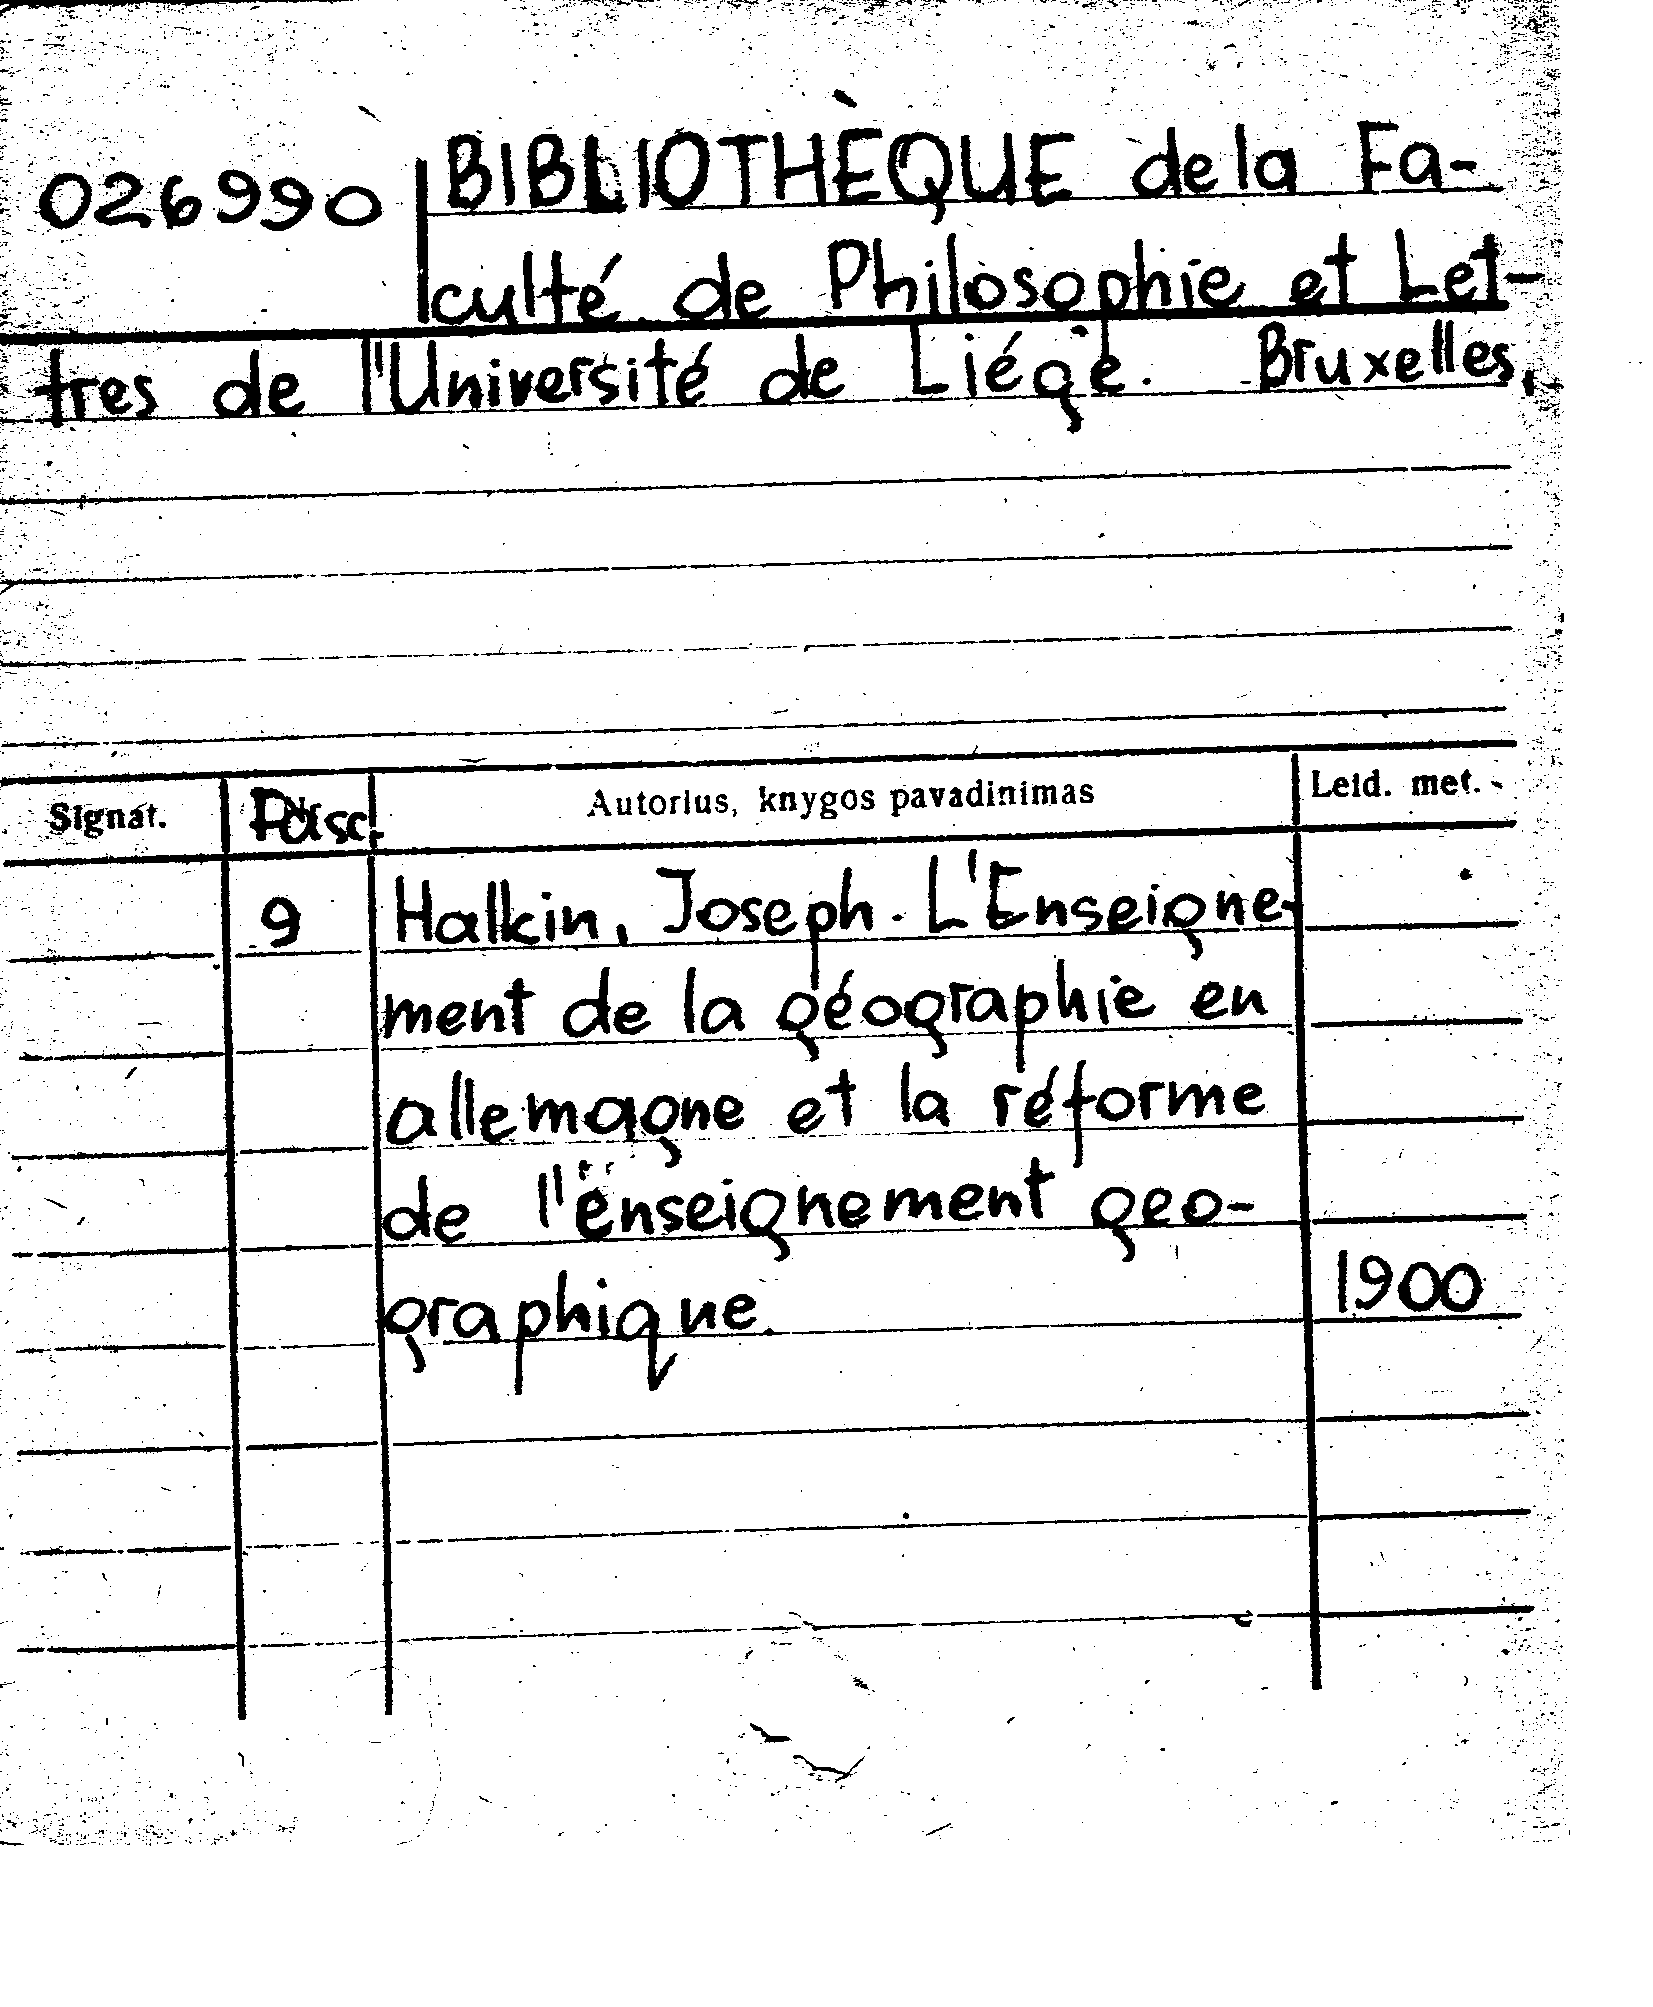 026990 BIBLIOTHÈQUE de la Fa-
culté de Philosophie et Let-
tres de l'Université de Liége. Bruxelles,
Signat. Fasc. Autorius, knygos pavadinimas Leid. met.
9 Halkin, Joseph. L'Enseigne-
ment de la géographie en
allemagne et la réforme
de l'enseignement geo-
graphique. 1900